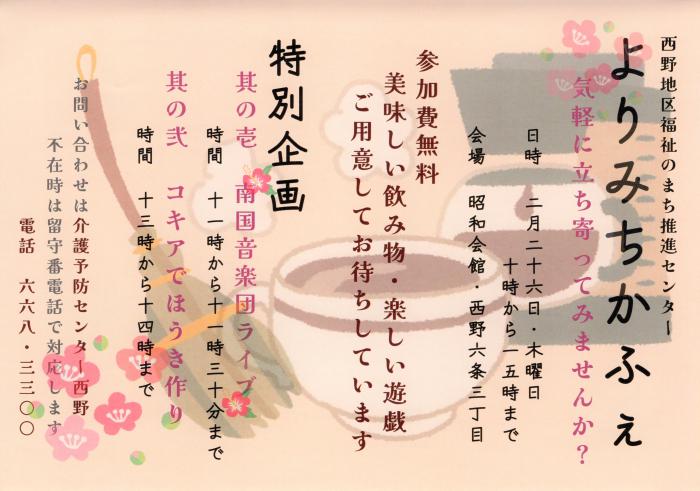 西野地区福祉のまち推進センター
よりみちかふぇ
気軽に立ち寄ってみませんか？
日時　二月二十六日・木曜日
十時から一五時まで
会場　昭和会館・西野六条三丁目
参加費無料
美味しい飲み物・楽しい遊戯
ご用意してお待ちしています
特別企画
其の壱　南国音楽団ライブ
時間　十一時から十一時三十分まで
其の弐　コキアでほうき作り
時間　十三時から十四時まで
お問い合わせは介護予防センター西野
不在時は留守番電話で対応します
電話　六六八・三三〇〇